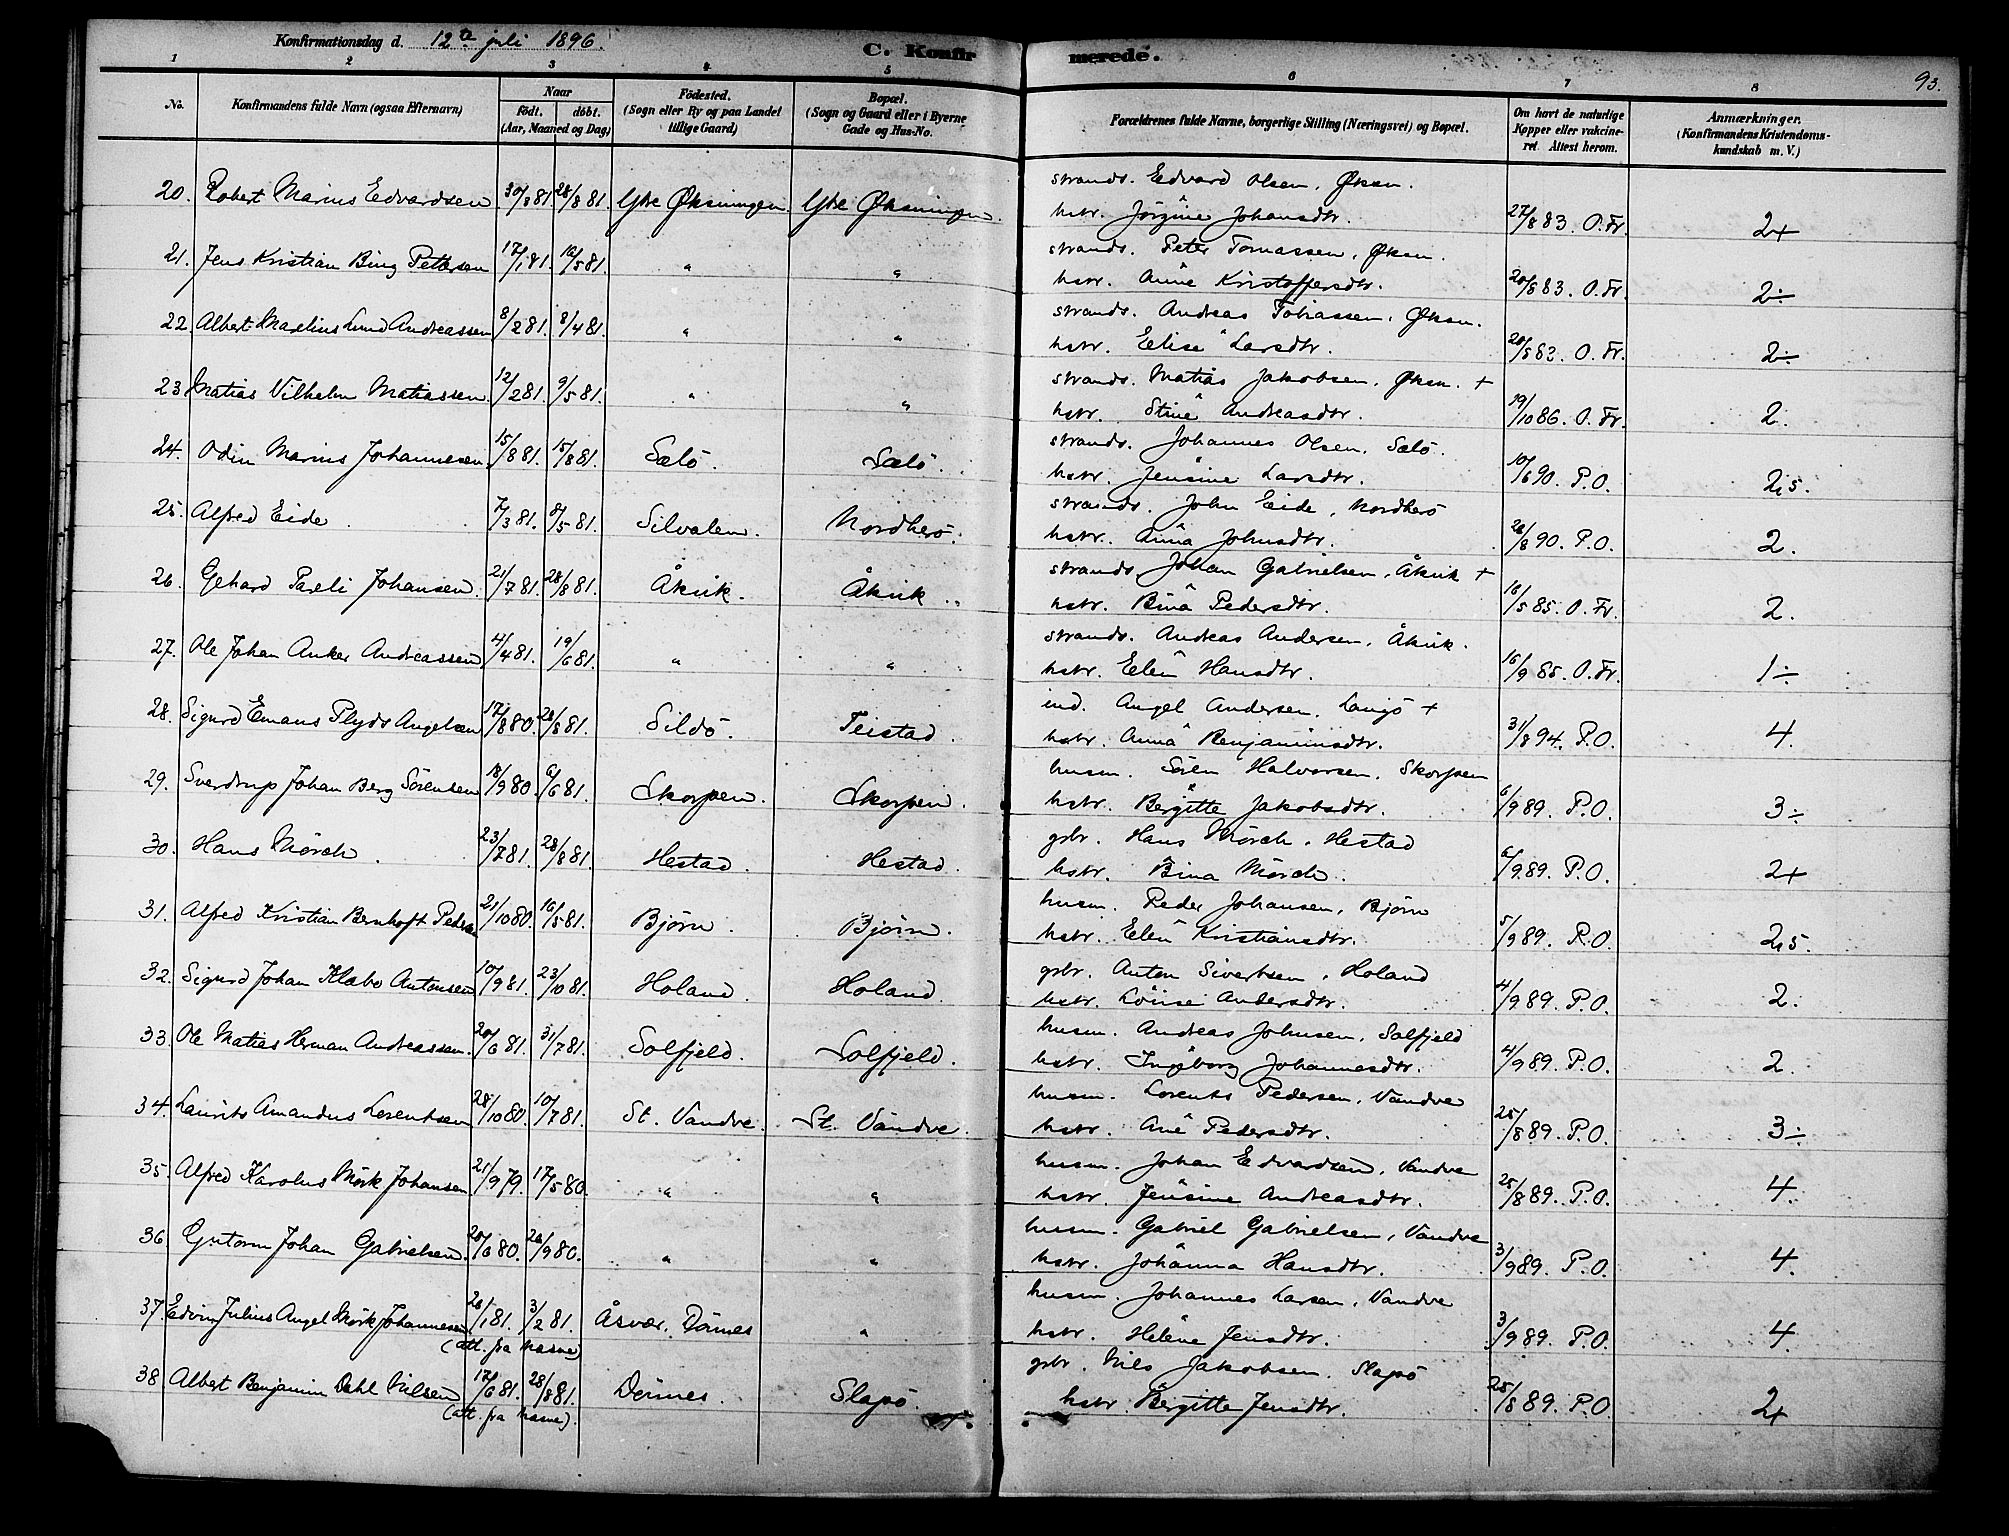 Konfirmationsdag d. 12te juli 1896.
C. Konfirmerede.
93.
1 2 3 4 5 6 7 8
No. Konfirmandens fulde Navn (ogsaa Efternavn) Naar født. døbt. (Aar, Maaned og Dag) Födested. (Sogn eller By og paa Landet tillige Gaard) Bopæl. (Sogn og Gaard eller i Byerne Gade og Hus-No. Forældrenes fulde Navne, borgerlige Stilling (Næringsvei) og Bopæl. Om havt de naturlige Kopper eller vakcineret. Attest herom. Anmærkninger. (Konfirmandens Kristendomskundskab m. V.)
20. Robert Marius Edvardsen 30/8 81 28/8 81 Ytre Øksningen Ytre Øksningen. strands. Edvard Olsen, Øksn.
hstr. Jörgine Johansdtr. 27/8 83. O. Fr. 2+
21. Jens Kristian Bing Pettersen 17/1 81. 16/5 81. " " strands. Peter Tomassen, Øksn.
hstr. Anne Kristoffersdtr. 20/8 83. O. Fr. 2÷
22. Albert Marelius Lund Andreassen 8/2 81. 8/4 81. " " strands. Andreas Tobiassen, Øksn.
hstr. Elise Larsdtr. 20/8 83. O. Fr. 2÷
23. Matias Vilhelm Matiassen 12/2 81. 9/5 81. " " strands. Matias Jakobsen, Øksn. +
hstr. Stine Andreasdtr. 19/10 86. O. Fr. 2.
24. Odin Marius Johannesen 15/8 81. 15/8 81. Sælö. Sælö. strands. Johannes Olsen, Sælö.
hstr. Jensine Larsdtr. 10/6 90. P.O. 2,5.
25. Alfred Eide 7/3 81. 8/5 81. Silvalen. Nordherö. strands. John Eide, Nordherö
hstr. Anna Johnsdtr. 28/8 90. P.O. 2.
26. Gehard Pareli Johansen. 21/7 81. 28/8 81. Åkvik. Åkvik. strands. Johan Gabrielsen, Åkvik +
hstr. Bina Pedersdtr. 16/5 85. O. Fr. 2.
27. Ole Johan Anker Andreassen 4/4 81. 19/6 81. " " strands. Andreas Andersen, Åkvik.
hstr. Elen Hansdtr. 16/9 85. O. Fr. 1÷
28. Sigurd Emans Plyds Angelsen 17/8 80. 28/8 81. Sildö. Teistad. ind. Angel Andersen, Langö +
hstr. Anna Benjaminsdtr. 31/8 94. P.O. 4.
29. Sverdrup Johan Berg Sörensen 18/9 80. 6/6 81. Skorpen. Skorpen. husm. Sören Halvorsen, Skorpen
hstr. Bergitte Jakobsdtr. 6/9 89. P.O. 3÷
30. Hans Mörch. 23/7 81. 28/8 81. Hestad. Hestad. gbr. Hans Mörch, Hestad
hstr. Bina Mörch. 6/9 89. P.O. 2+
31. Alfred Kristian Bernhoft Peders 21/10 80. 16/5 81. Bjørn. Bjørn. husm. Peder Johansen, Bjørn
hstr. Elen Kristiansdtr. 5/9 89. P.O. 2,5
32. Sigurd Johan Klæbo Antonsen 10/9 81. 23/10 81. Holand. Holand. gbr. Anton Sivertsen, Holand
hstr. Lovise Andersdtr. 4/9 89. P.O. 2.
33. Ole Matias Herman Andreassen. 20/6 81. 31/7 81. Solfjeld. Solfjeld. husm. Andreas Johnsen, Solfjeld
hstr. Ingeborg Johannesdtr. 4/9 89. P.O. 2.
34. Laurits Amandus Lorentsen 28/10 80. 10/7 81. St. Vandve. St. Vandve. husm. Lorents Pedersen, Vandve
hstr. Ane Pedersdtr. 25/8 89. P.O. 3÷
35. Alfred Karolus Mörk Johansen 21/9 79. 17/5 80. " " husm. Johan Edvardsen, Vandve
hstr. Jensine Andreasdtr. 25/8 89. P.O. 4.
36. Gutorm Johan Gabrielsen. 20/6 80. 26/9 80. " " husm. Gabriel Gabrielsen, Vandve
hstr. Johanna Hansdtr. 3/9 89. P.O. 4.
37. Edvin Julius Angel Mörk Johannesen 26/1 81. 3/2 81. Åsvær, Dönnes " husm. Johannes Larsen, Vandve
(att. fra Næsne) hstr. Helene Jensdtr. 3/9 89. P.O. 4.
38. Albert Benjamin Dahl Nilsen 17/6 81. 28/8 81. Dönnes. Slapö. gbr. Nils Jakobsen, Slapö
(att. fra Næsne). hstr. Bergitte Jensdtr. 25/8 89. P.O. 2+